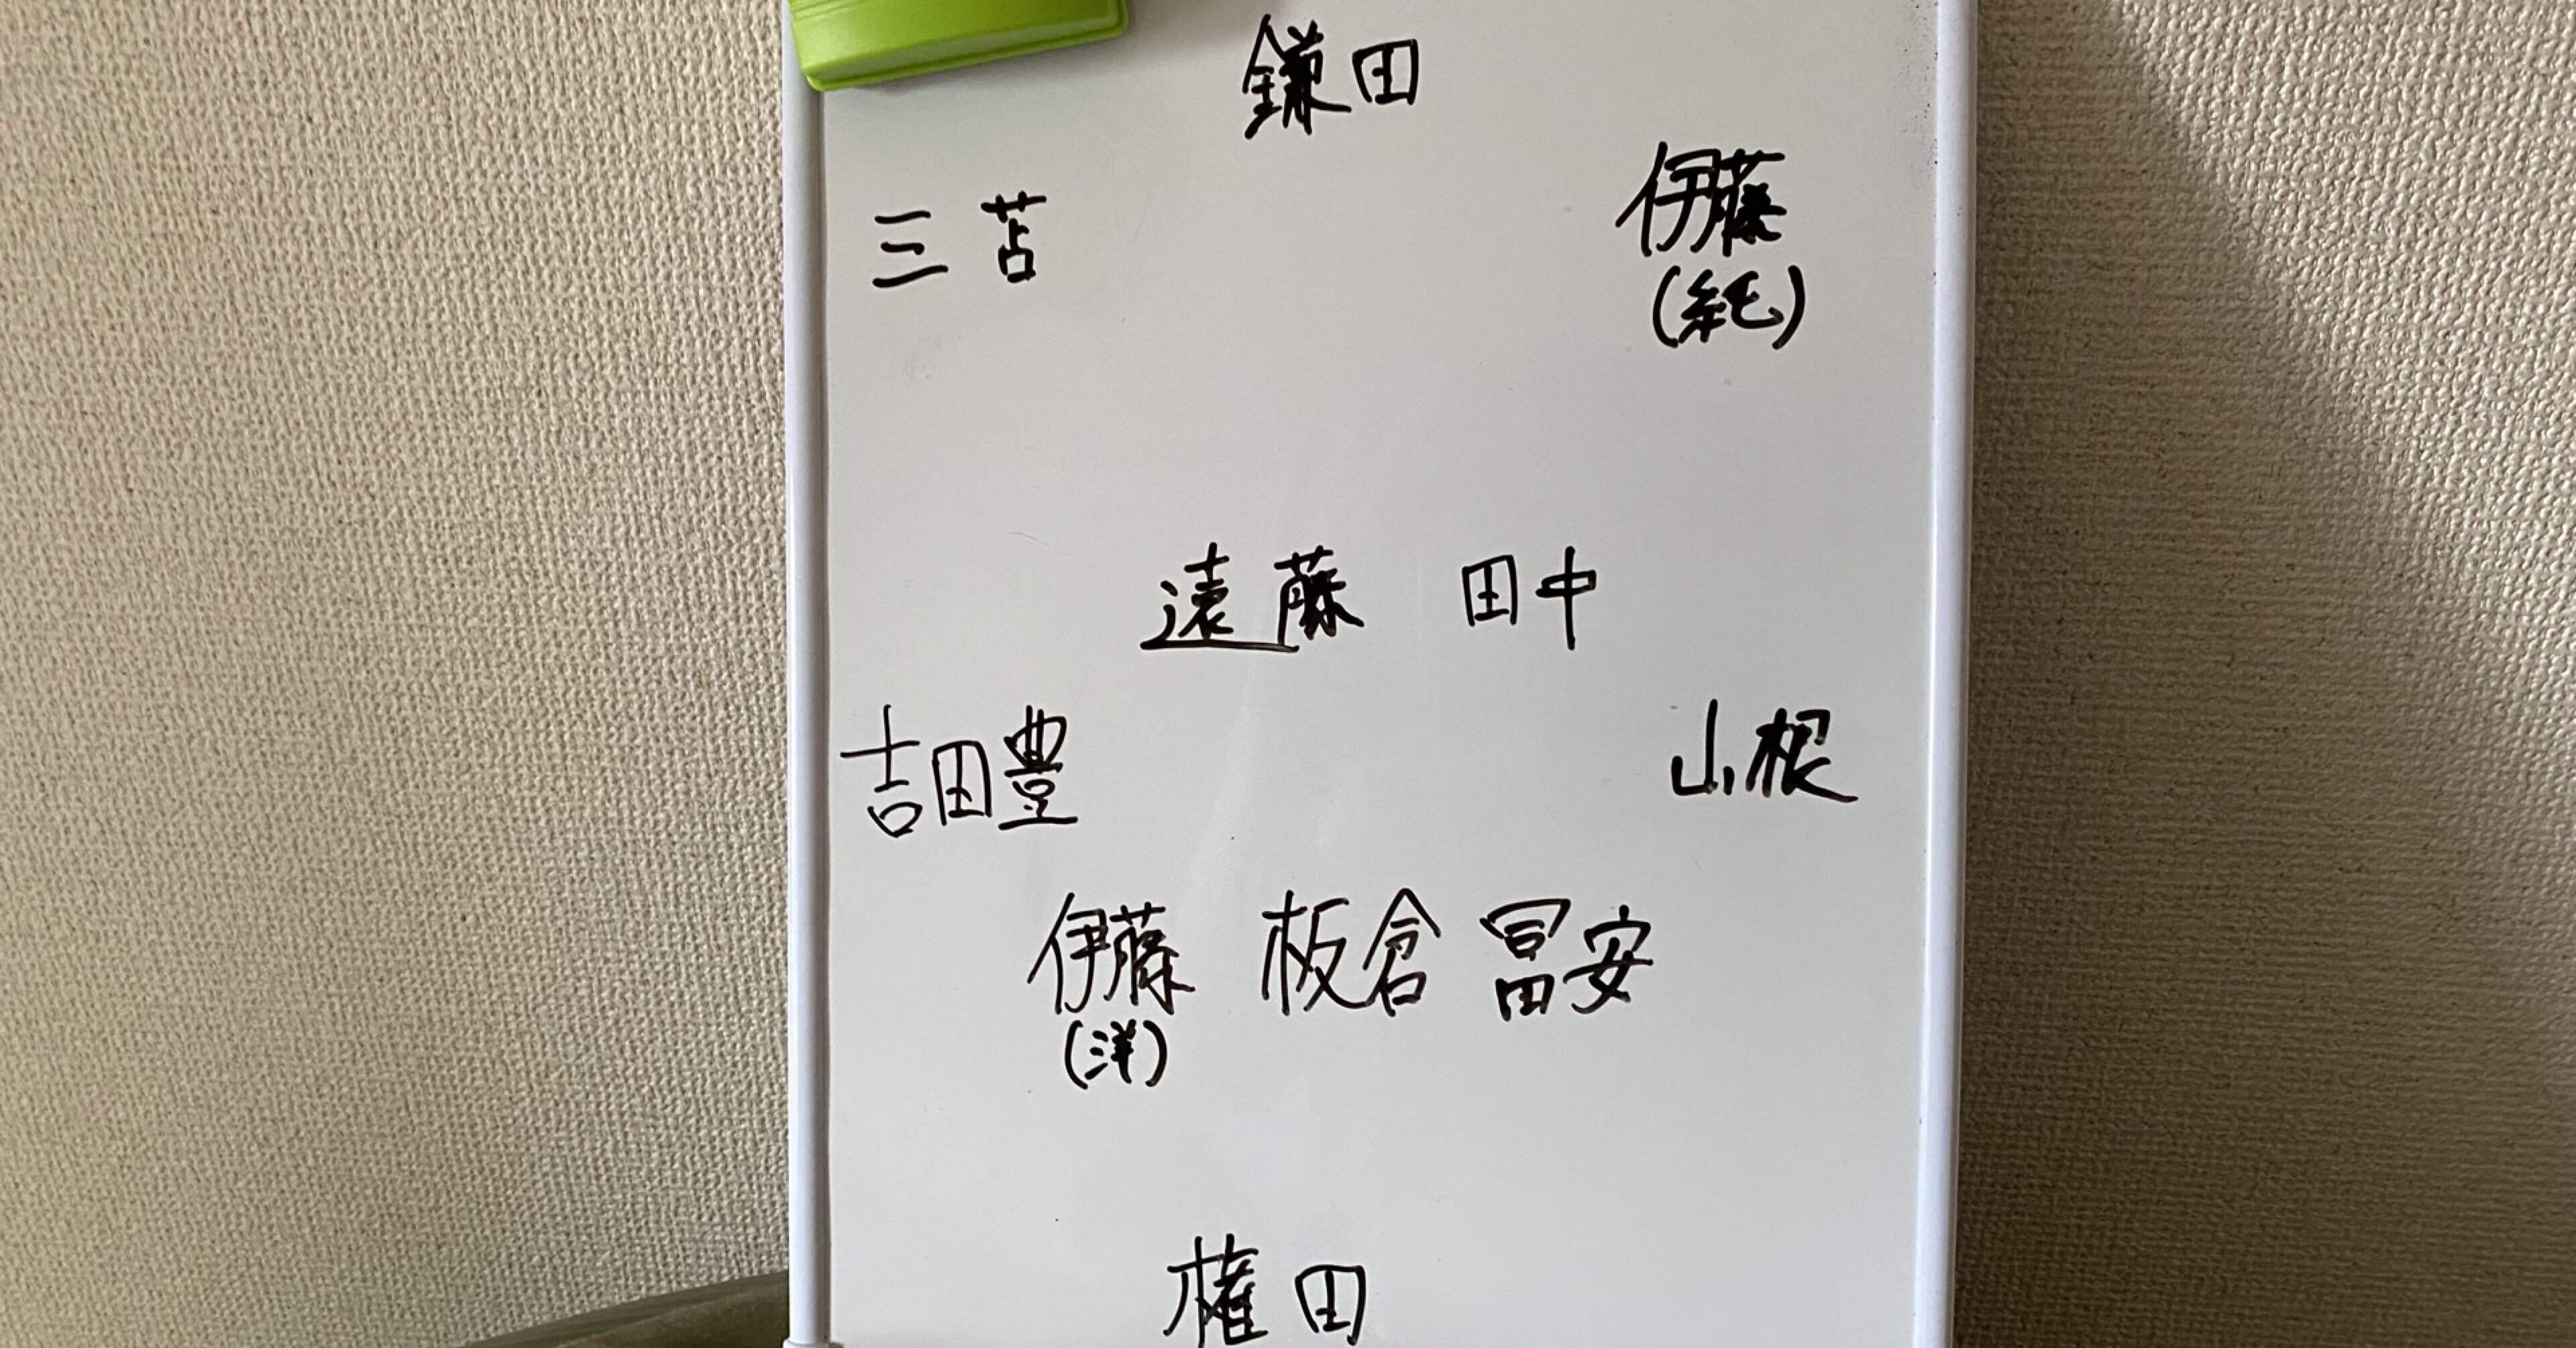 鎌田
三苫
伊藤
(純)
遠藤 田中
吉田豊
山根
伊藤 板倉 冨安
(洋)
権田